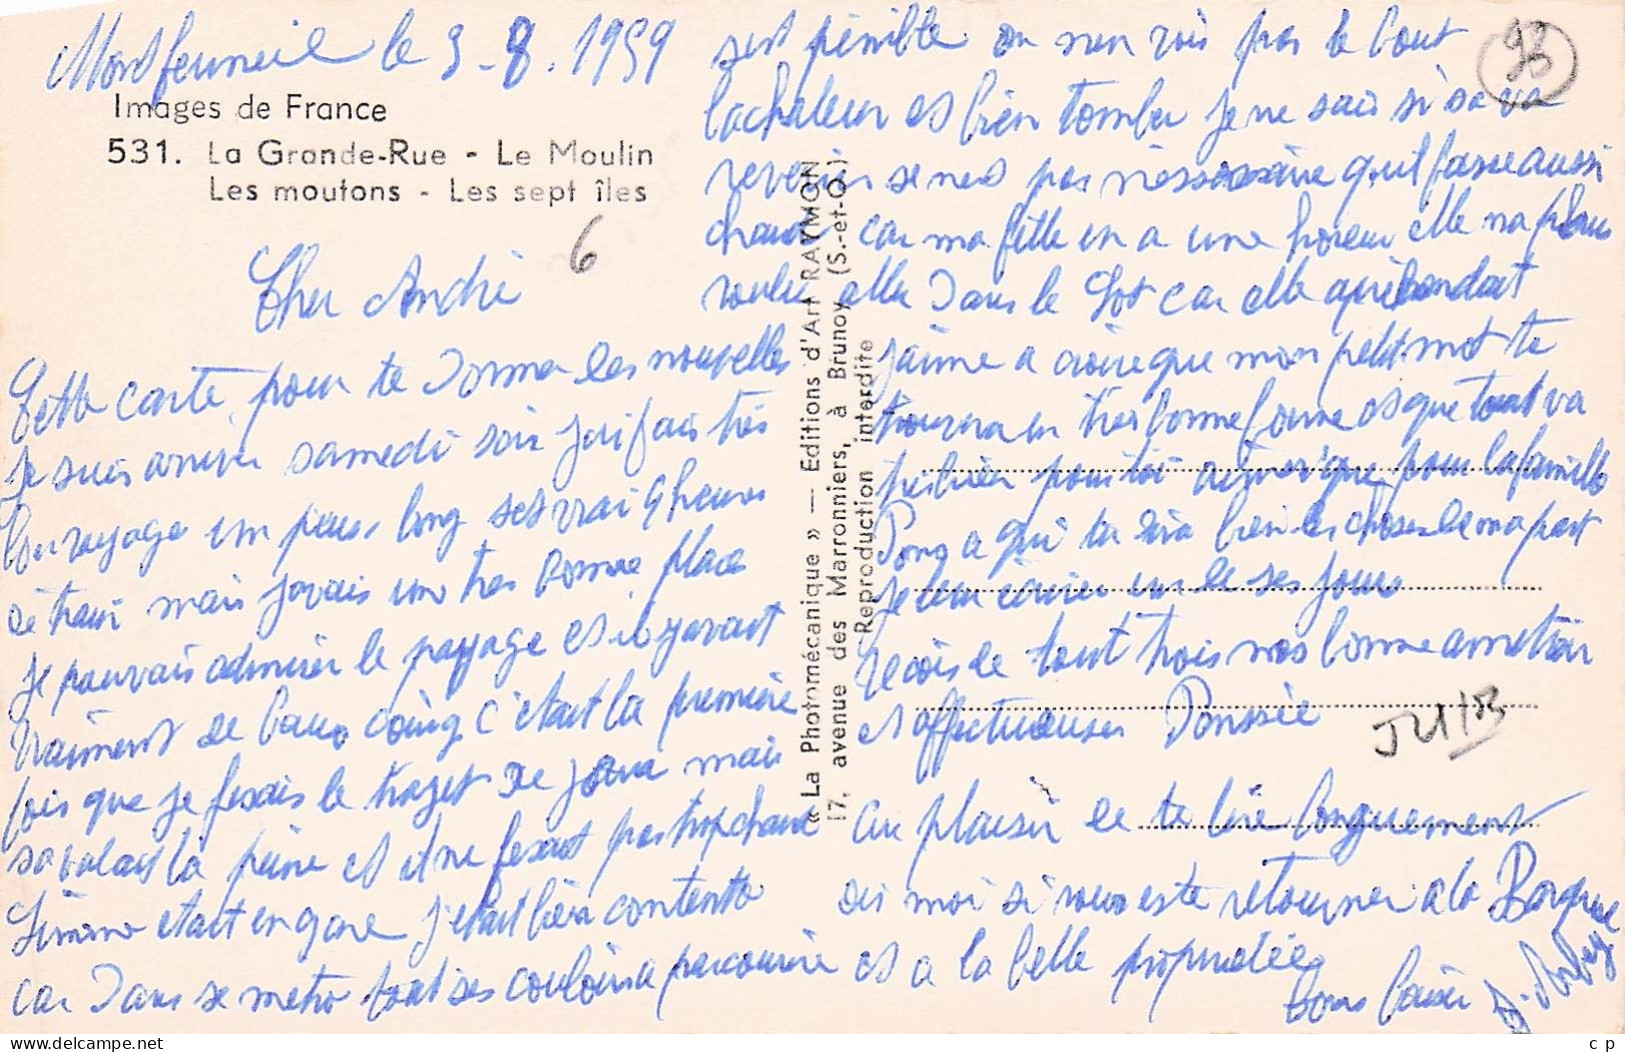 Montfermeil le 3-8.1959
Images de France
531. La Grande-Rue - Le Moulin
Les moutons - Les sept îles
6
Cher André
Cette carte pour te donner les nouvelles
je suis arriver samedi soir j'ai fais très
bon voyage un peus long ses vrai 9 heures
de train mais j'avais une très bonne place
je pouvais admirer le paysage et il y avait
vraiment de beaux coing c'etait la première
fois que je fesais le trajet de jour mais
sa valait la peine et il ne fesait pas trop chaud
Simone etait en gare j'etait bien contente
car dans se metro tout ses couloirs a parcourire
« La Photomécanique » — Editions d'Art RAYMON
17, avenue des Marronniers, à Brunoy (S.-et-O.)
Reproduction interdite
93
sest pénible on nen vois pas le bout
la chaleur est bien tomber je ne sais si sa va
revenir se nest pas nessessaire quil fasse aussi
chaud car ma fille en a une horeur elle na plus
voulu aller dans le Lot car elle apréendait
j'aime a croire que mon petit mot te
trouvera en très bonne forme et que tout va
très bien pour toi ainsi que pour la famille
Pong a qui tu dira bien les choses de ma part
je leur écrirer un de ses jours
recois de tout trois nos bonne amitiér
et affectueuses Pensée
J21/13
au plaisir de te lire longuement
dis moi si vous este retourner a la
et a la belle proprietée
bons baiser
cp